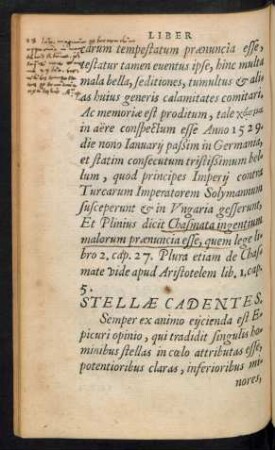 LIBER
earum tempestatum prænuncia esse,
testatur tamen euentus ipse, hinc multa
mala bella, seditiones, tumultus & ali
as huius generis calamitates comitari.
Ac memoriæ est proditum, tale
in aëre conspectum esse Anno 1529.
die nono Ianuarij passim in Germania,
et statim consecutum tristissimum bel
lum, quod principes Imperij contra
Turcarum Imperatorem Solymannum
susceperunt & in Vngaria gesserunt.
Et Plinius dicit Chasmata ingentium
malorum prænuncia esse, quem lege li
bro 2. cap. 27. Plura etiam de Chas
mate vide apud Aristotelem lib. 1. cap.
5.
STELLÆ CADENTES.
Semper ex animo eijcienda est E-
picuri opinio, qui tradidit singulis ho
minibus stellas in cœlo attributas esse,
potentioribus claras, inferioribus mi
nores,